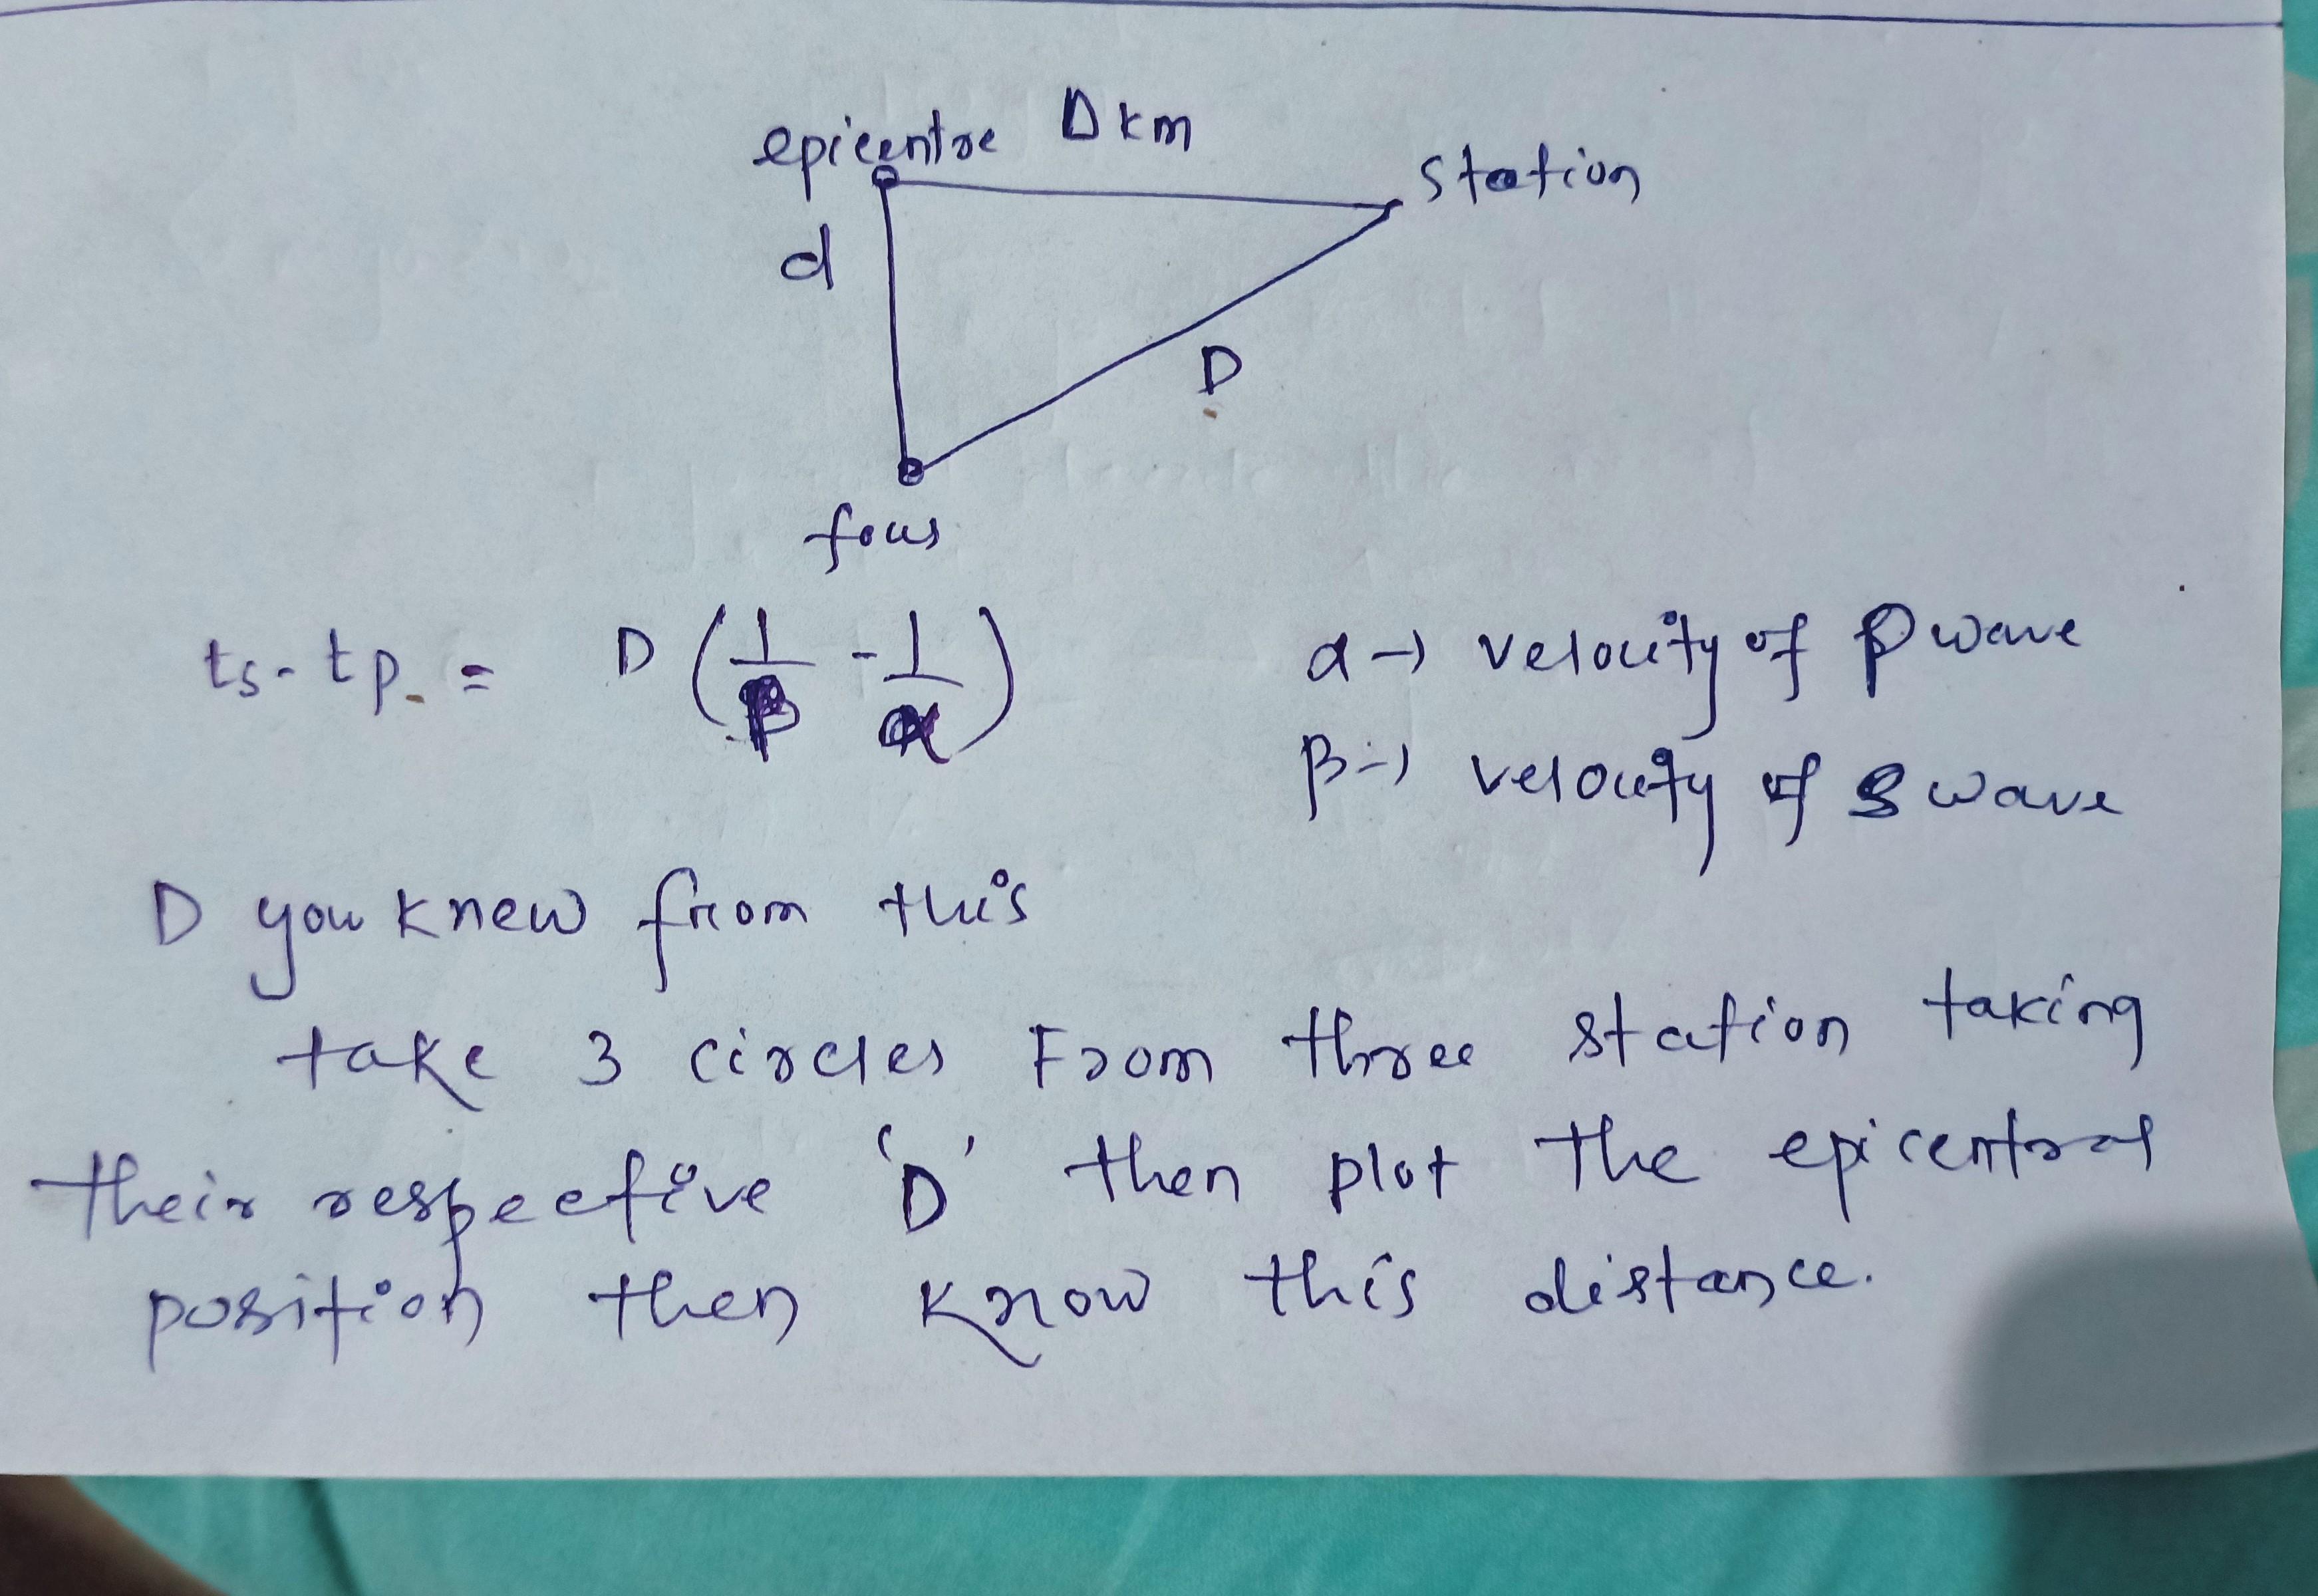 epicentre D km
station
d
D
focus
ts - tp = D (1/β - 1/α)
α → velocity of P wave
β → velocity of S wave
D you knew from this
take 3 circles From three station taking
their respective 'D' then plot the epicentral
position then know this distance.